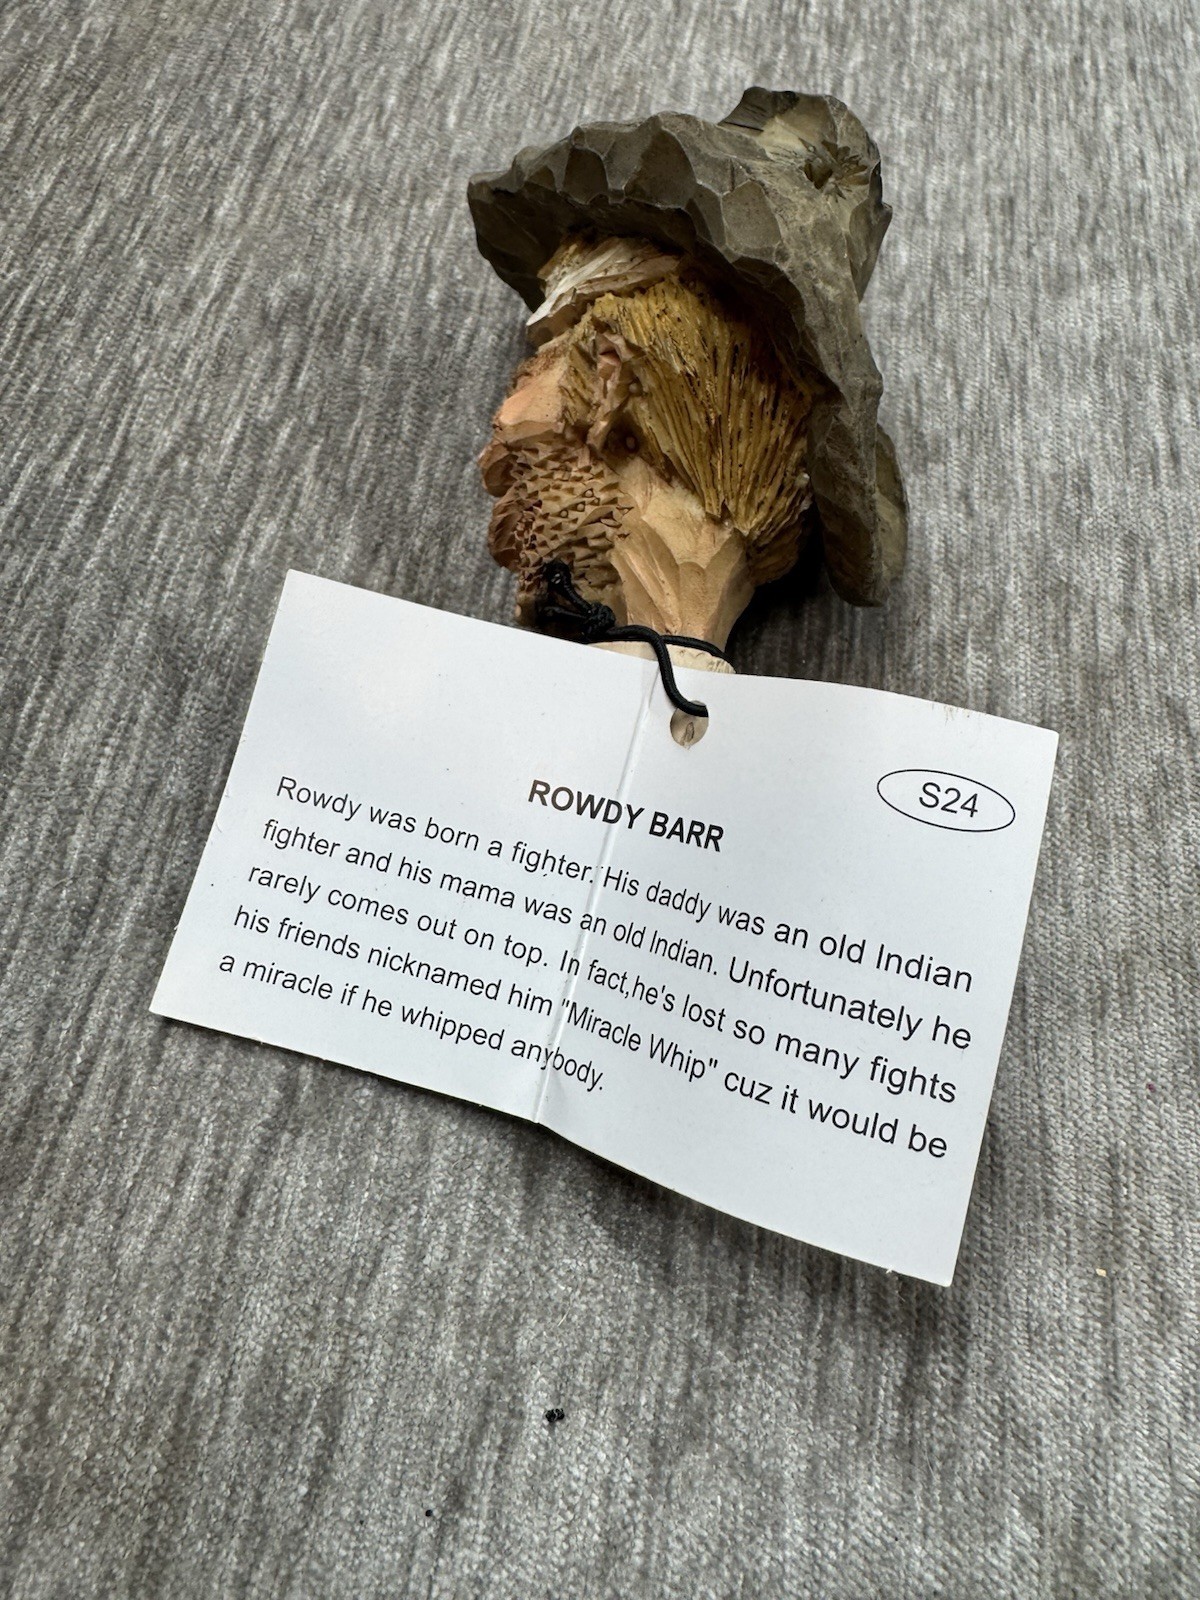 S24
ROWDY BARR
Rowdy was born a fighter. His daddy was an old Indian
fighter and his mama was an old Indian. Unfortunately he
rarely comes out on top. In fact,he's lost so many fights
his friends nicknamed him "Miracle Whip" cuz it would be
a miracle if he whipped anybody.